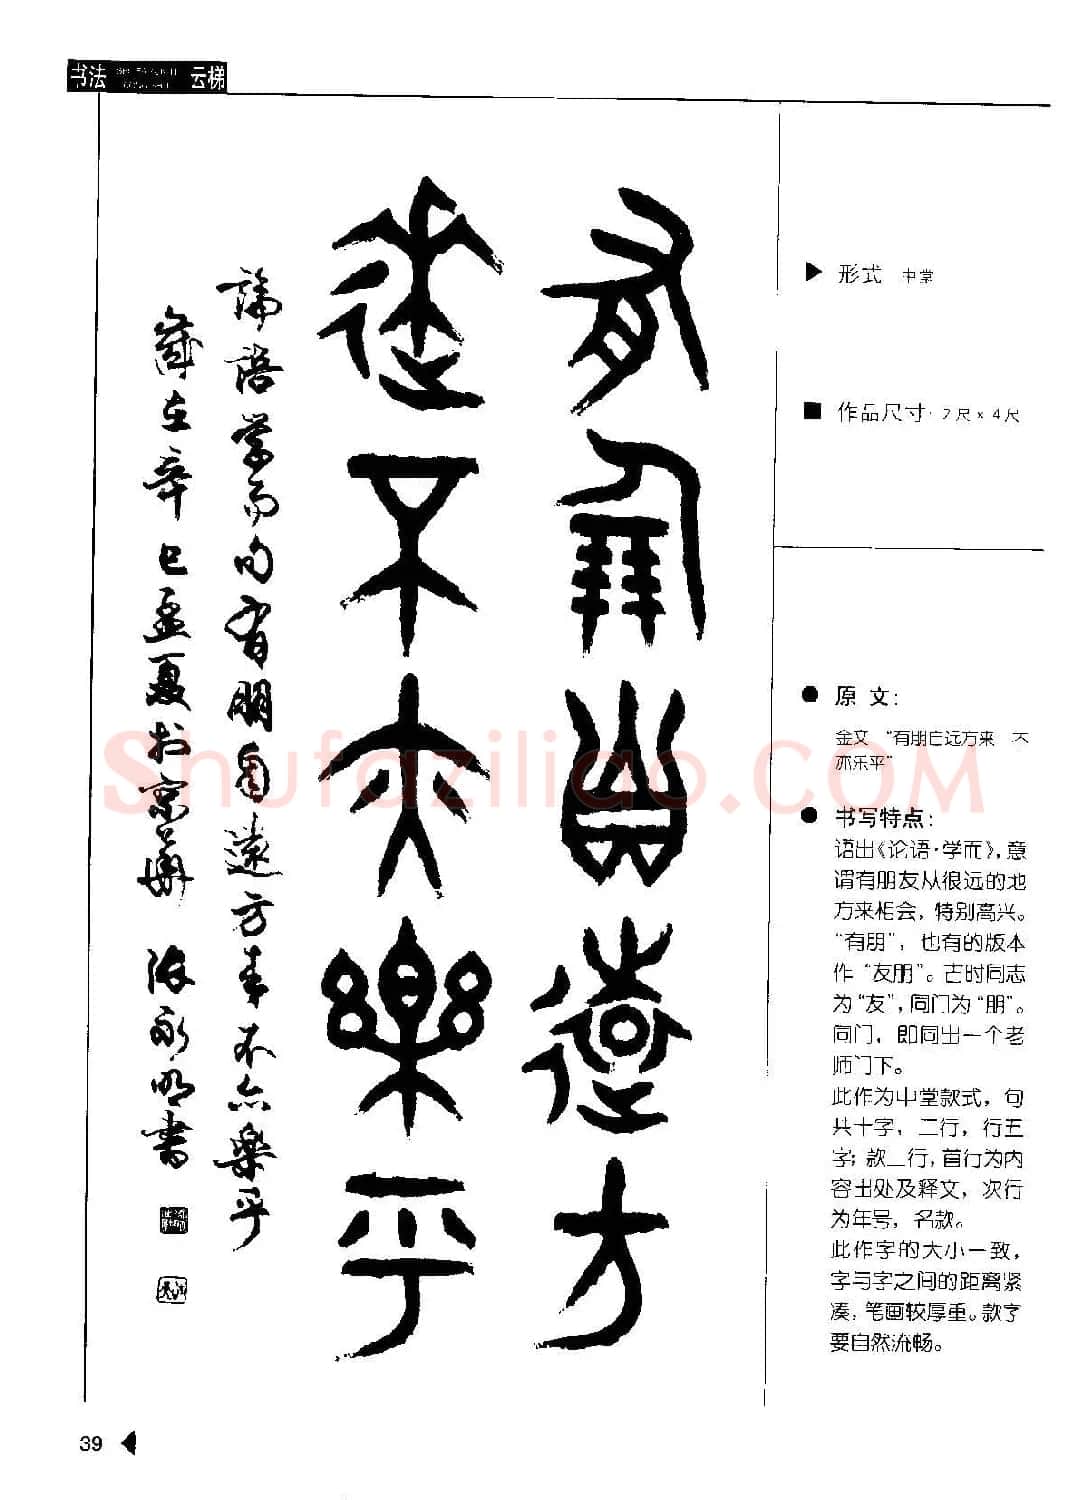 书法 云梯
有朋自远方
来不亦乐乎
論語學而句有朋自遠方来不亦樂乎
歲在辛巳孟夏於京華 永明書
▶ 形式 中堂
■ 作品尺寸·2尺×4尺
● 原 文：
金文 “有朋自远方来 不
亦乐乎”
● 书写特点：
语出《论语·学而》，意
谓有朋友从很远的地
方来相会，特别高兴。
“有朋”，也有的版本
作“友朋”。古时同志
为“友”，同门为“朋”。
同门，即同出一个老
师门下。
此作为中堂款式，句
共十字，二行，行五
字；款二行，首行为内
容出处及释文，次行
为年号，名款。
此作字的大小一致，
字与字之间的距离紧
凑，笔画较厚重。款字
要自然流畅。
39
Shufaziliao.COM